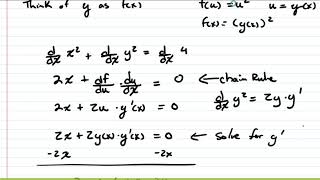 Think of y as f(x)
f(u) = u² u = y(x)
f(x) = (y(x))²
d/dx x² + d/dx y² = d/dx 4
2x + df/du du/dx = 0 ← chain Rule
2x + 2u · y'(x) = 0
d/dx y² = 2y · y'
2x + 2y(x) · y'(x) = 0 ← solve for y'
-2x -2x